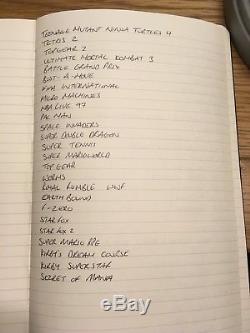 TEENAGE MUTANT NINJA TURTLES 4
TETRIS 2
TOP GEAR 2
ULTIMATE MORTAL KOMBAT 3
BATTLE GRAND PRIX
BUST-A-MOVE
FIFA INTERNATIONAL
MICRO MACHINES
NBA LIVE 97
PAC MAN
SPACE INVADERS
SUPER DOUBLE DRAGON
SUPER TENNIS
SUPER MARIOWORLD
TOP GEAR
WORMS
ROYAL RUMBLE WWF
EARTH BOUND
F-ZERO
STAR FOX
STAR FOX 2
SUPER MARIO RPG
KIRBY'S DREAM COURSE
KIRBY SUPERSTAR
SECRET OF MANA